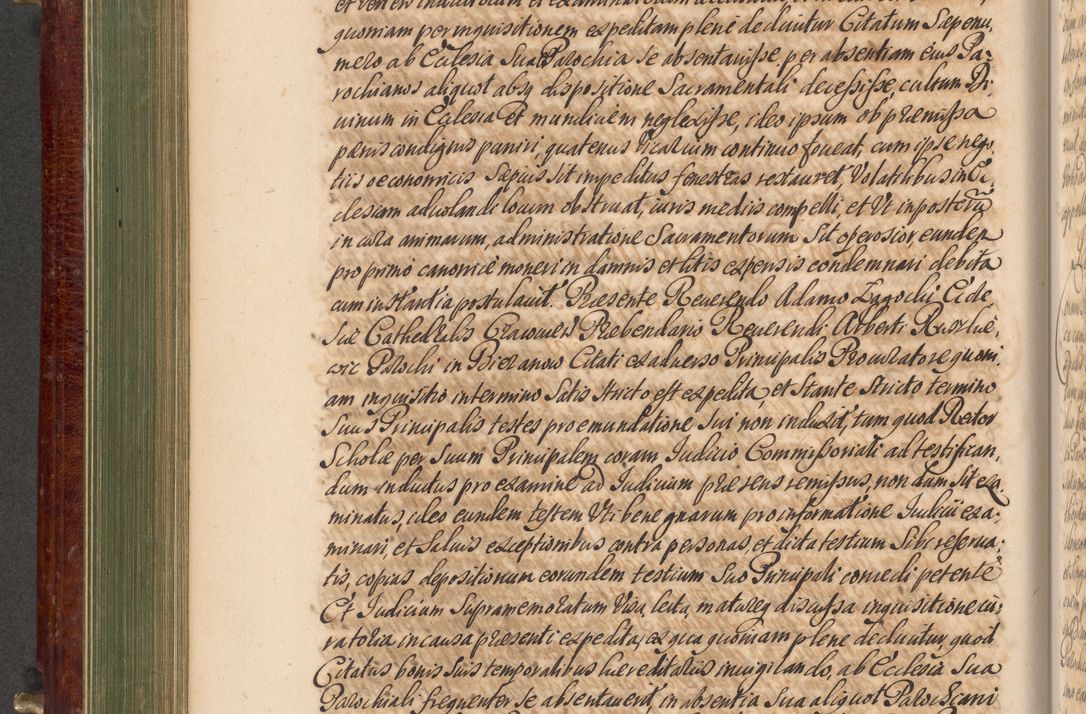 quoniam per inquisitionem expeditam plene deducitur Citatum Sæpenu,
mero ab Ecclesia Sua Parochia se absentavisse, per absentiam eius Pa-
rochianos aliquot absq dispositione Sacramentali decessisse, cultum Di
vinum in Eclesia et mundiciem neglexisse, ideo ipsum ob præmissa
pænis condignis puniri, quatenus Vicarium continuo foveat, cum ipse nego,
tiis oeconomicis Sæpius sit impeditus fenestras restauret, Volatilibus in Ec
clesiam advolandi locum obstruat, iuris mediis compelli, et Ut in posterũ
in cura animarum, administratione Sacramentorum Sit operosior eundem
pro primo canonicè moneri in damnis et litis expensis condemnari debita
cum instantia postulavit. Præsente Reverendo Adamo Zagocki Ecle,
siæ Cathedralis Cracovien Præbendario Reverendi Alberti
wic Parochi in Biezanow Citati ex adverso Principalis Procuratore quoni,
am inquisitio in termino Satis stricto est expedita, et Stante Stricto termino
Suus Principalis testes pro emundatione Sui non induxit, tum quod Rector
Scholæ per Suum Principalem coram Iudicio Commissoriali ad testifican,
dum inductus pro examine ad Iudicium præsens remissus, non dum Sit exa
minatus, ideo eundem testem Uti bene gnarum pro informatione Iudicii exa-
minari, et Salvis exceptionibus contra personas et dicta testium Sibi reserva-
tis, copias depositionum eorundem testium Suo Principali concedi petente
Et Iudicium Supramemoratum Visa, lecta, matureq discussa inquisitione iu-
ratoria in causa præsenti expedita, ex qua quoniam plene deducitur, quod
Citatus bonis Suis temporalibus hæreditariis invigilando, ab Ecclesia Sua
Parochiali frequenter se absentaverit, in absentia Sua aliquot Parochiani